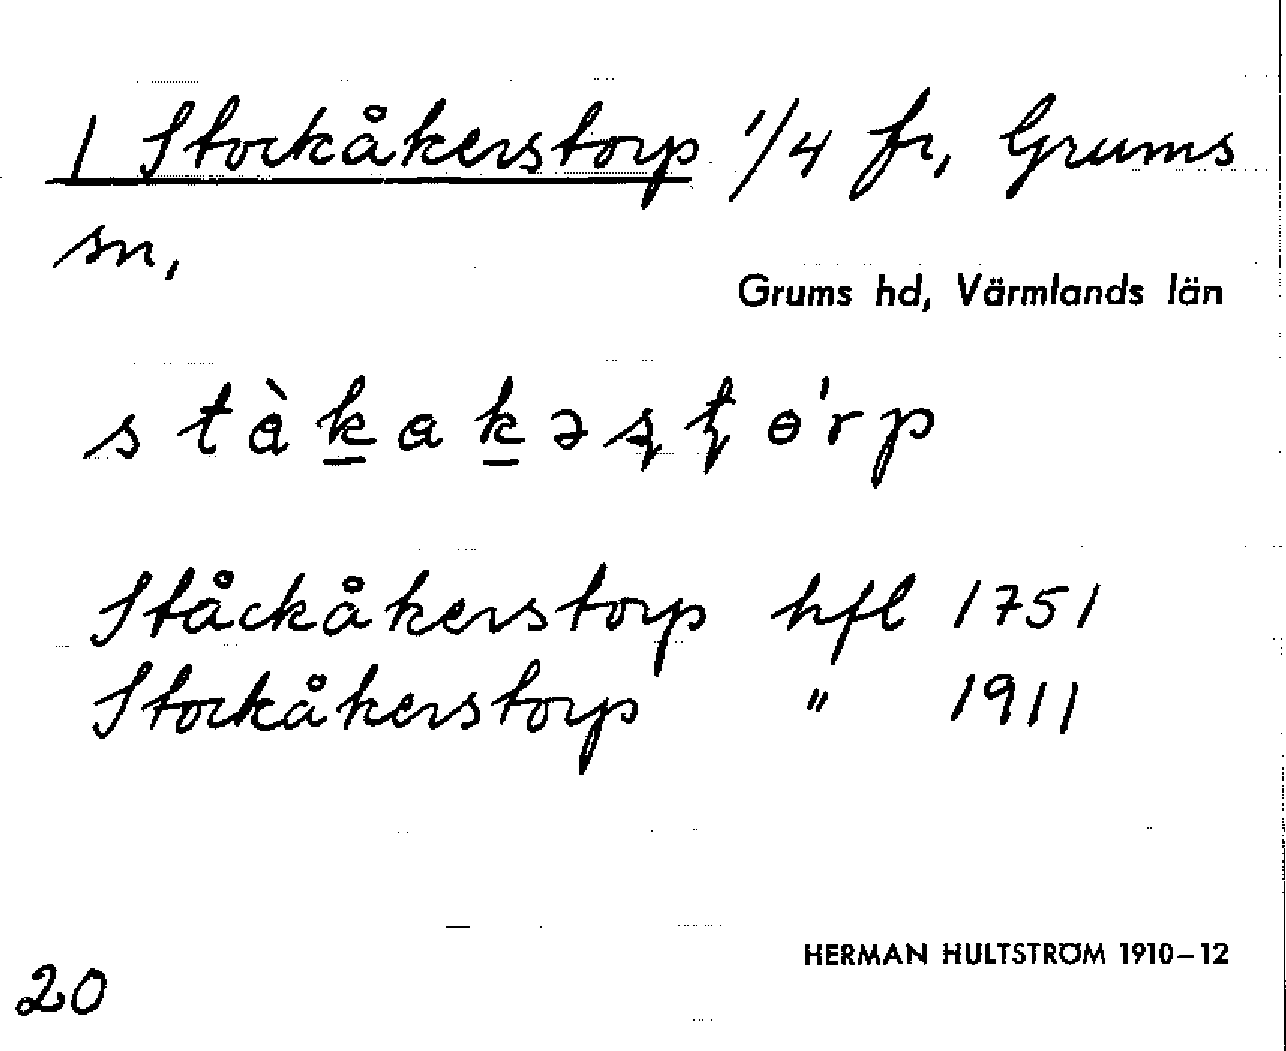 1 Stockåkerstorp 1/4 fr, Grums
sn,
Grums hd, Värmlands län
Ståckåkerstorp hfl 1751
Stockåkerstorp " 1911
HERMAN HULTSTRÖM 1910–12
20